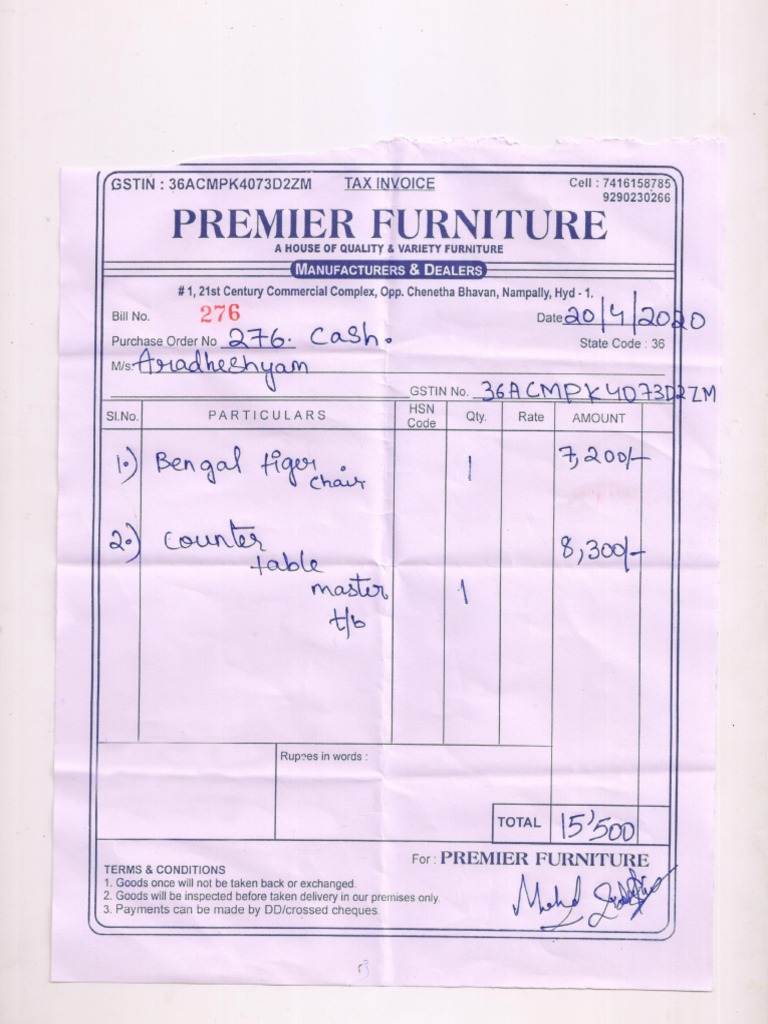 GSTIN : 36ACMPK4073D2ZM TAX INVOICE Cell : 7416158785
9290230266
PREMIER FURNITURE
A HOUSE OF QUALITY & VARIETY FURNITURE
MANUFACTURERS & DEALERS
# 1, 21st Century Commercial Complex, Opp. Chenetha Bhavan, Nampally, Hyd - 1.
Bill No. 276 Date 20/4/2020
Purchase Order No 276. Cash. State Code : 36
M/s. Aradheshyam
GSTIN No. 36ACMPK4073D2ZM
Sl.No. PARTICULARS HSN Code Qty. Rate AMOUNT
1.) Bengal tiger 1 7,200/-
chair
2.) counter 8,300/-
table
master 1
t/b
Rupees in words :
TOTAL 15'500
For : PREMIER FURNITURE
TERMS & CONDITIONS
1. Goods once will not be taken back or exchanged.
2. Goods will be inspected before taken delivery in our premises only.
3. Payments can be made by DD/crossed cheques.
Mohd